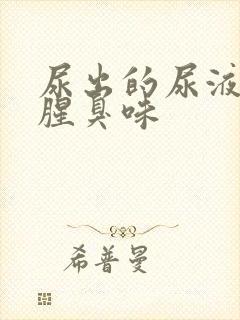 尿出的尿液
腥臭味
希普曼